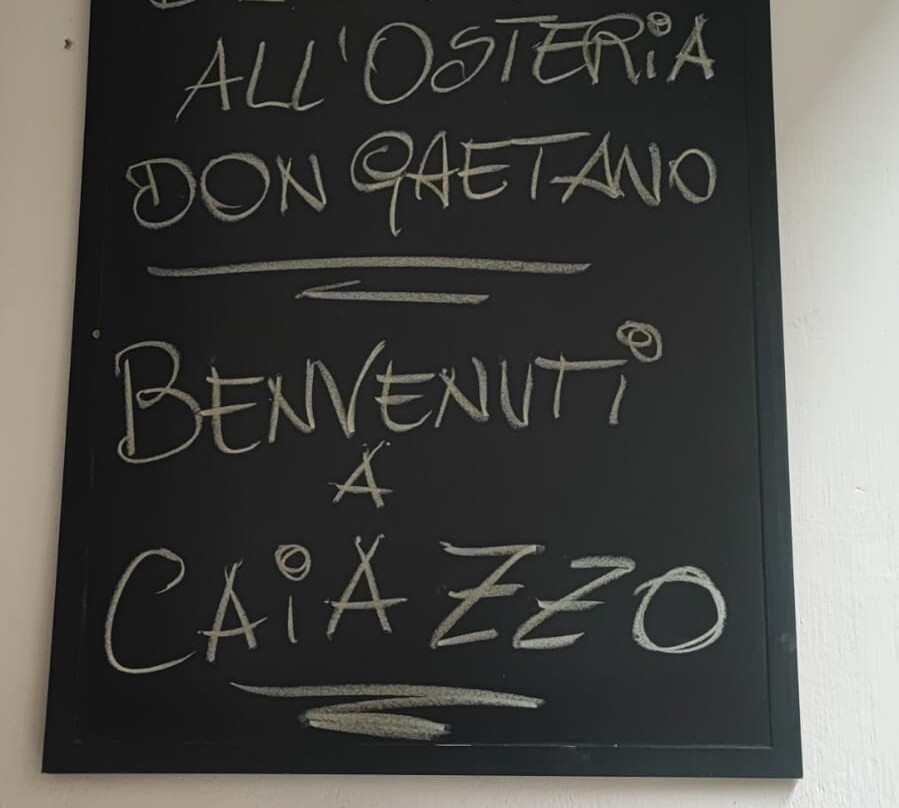 ALL'OSTERiA
DON GAETANO
BENVENUTi
A
CAiAZZO